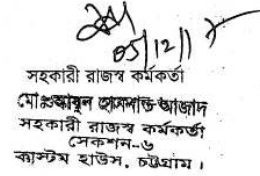 05/12/
সহকারী রাজস্ব কর্মকর্তা
মোঃ আবুল আজাদ
সহকারী রাজস্ব কর্মকর্তা
সেকশন-৬
কাস্টম হাউস, চট্টগ্রাম।